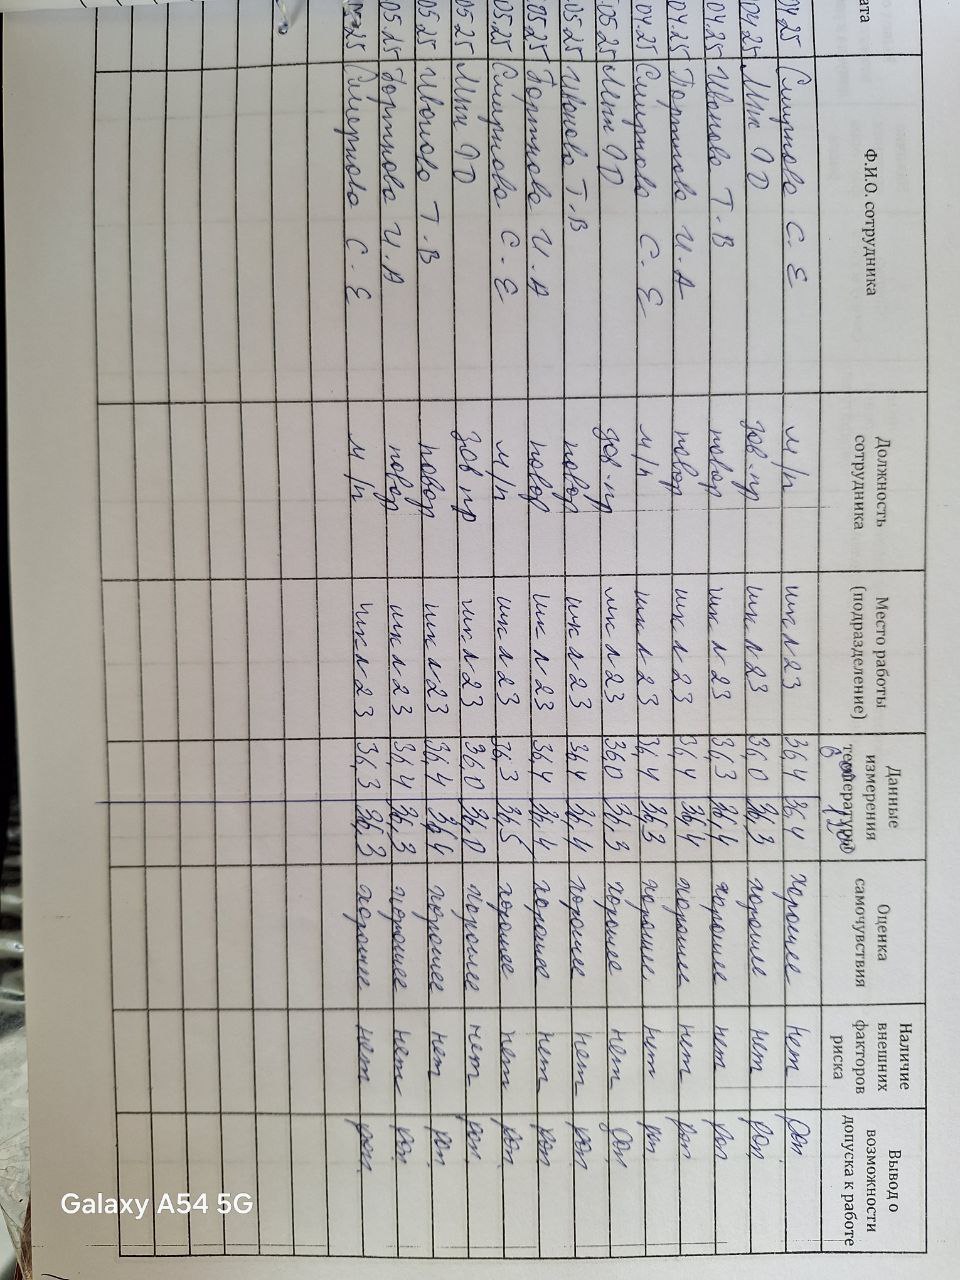 ата Ф.И.О. сотрудника Должность сотрудника Место работы (подразделение) Данные измерения температуры Оценка самочувствия Наличие внешних факторов риска Вывод о возможности допуска к работе
04.25 Смирнова С.Е м/п шк №23 36,4 36,4 хорошее нет доп.
04.25 Мки зав.пр шк №23 36,0 36,3 хорошее нет доп
04.25 Иванова Т.В повар шк №23 36,3 36,4 хорошее нет доп
04.25 Портнова И.А повар шк №23 36,4 36,4 хорошее нет доп
04.25 Смирнова С.Е м/п шк №23 36,4 36,3 хорошее нет доп
05.25 зав.пр шк №23 36,0 36,3 хорошее нет доп
05.25 Иванова Т.В повар шк №23 36,4 36,4 хорошее нет доп
05.25 Портнова И.А повар шк №23 36,4 36,4 хорошее нет доп
05.25 Смирнова С.Е м/п шк №23 36,3 36,5 хорошее нет доп.
05.25 зав пр шк №23 36,0 36,0 хорошее нет доп.
05.25 Иванова Т.В повар шк №23 36,4 36,4 хорошее нет доп.
05.25 Портнова И.А повар шк №23 36,4 36,3 хорошее нет доп.
25 Смирнова С.Е м/п шк №23 36,3 36,3 хорошее нет доп.
Galaxy A54 5G